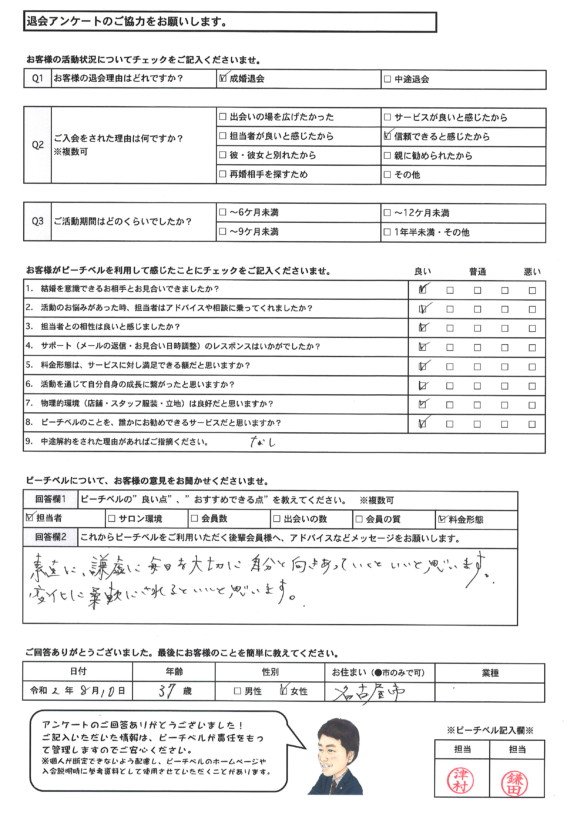 退会アンケートのご協力をお願いします。
お客様の活動状況についてチェックをご記入くださいませ。
Q1 お客様の退会理由はどれですか？ ☑成婚退会 □中途退会
Q2 ご入会をされた理由は何ですか？ ※複数可
□出会いの場を広げたかった □サービスが良いと感じたから
□担当者が良いと感じたから ☑信頼できると感じたから
□彼・彼女と別れたから □親に勧められたから
□再婚相手を探すため □その他
Q3 ご活動期間はどのくらいでしたか？
□〜6ケ月未満 □〜12ケ月未満
□〜9ケ月未満 □1年半未満・その他
お客様がピーチベルを利用して感じたことにチェックをご記入くださいませ。 良い 普通 悪い
1. 結婚を意識できるお相手とお見合いできましたか？ ☑ □ □ □ □
2. 活動のお悩みがあった時、担当者はアドバイスや相談に乗ってくれましたか？ ☑ □ □ □ □
3. 担当者との相性は良いと感じましたか？ ☑ □ □ □ □
4. サポート（メールの返信・お見合い日時調整）のレスポンスはいかがでしたか？ ☑ □ □ □ □
5. 料金形態は、サービスに対し満足できる額だと思いますか？ ☑ □ □ □ □
6. 活動を通じて自分自身の成長に繋がったと思いますか？ ☑ □ □ □ □
7. 物理的環境（店舗・スタッフ服装・立地）は良好だと思いますか？ ☑ □ □ □ □
8. ピーチベルのことを、誰かにお勧めできるサービスだと思いますか？ ☑ □ □ □ □
9. 中途解約をされた理由があればご指摘ください。 なし
ピーチベルについて、お客様の意見をお聞かせくださいませ。
回答欄1 ピーチベルの”良い点”、”おすすめできる点”を教えてください。 ※複数可
☑担当者 □サロン環境 □会員数 □出会いの数 □会員の質 ☑料金形態
回答欄2 これからピーチベルをご利用いただく後輩会員様へ、アドバイスなどメッセージをお願いします。
素直に、謙虚に毎日を大切に自分と向きあっていくといいと思います。
変化に柔軟にされるといいと思います。
ご回答ありがとうございました。最後にお客様のことを簡単に教えてください。
日付 年齢 性別 お住まい（●市のみで可） 業種
令和2年8月10日 37歳 □男性 ☑女性 名古屋市
アンケートのご回答ありがとうございました！
ご記入いただいた情報は、ピーチベルが責任をもっ
て管理しますのでご安心ください。
※個人が断定できないよう配慮し、ピーチベルのホームページや
入会説明時に参考資料として使用させていただくことがあります。
※ピーチベル記入欄※
担当 担当
津村 鎌田